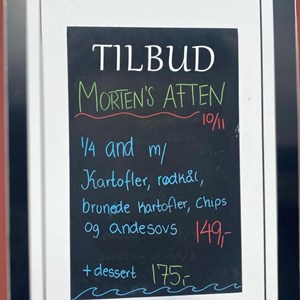 TILBUD
MORTEN'S AFTEN
10/11
1/4 and m/
Kartofler, rødkål,
brunede kartofler, chips
og andesovs 149,-
+ dessert 175,-